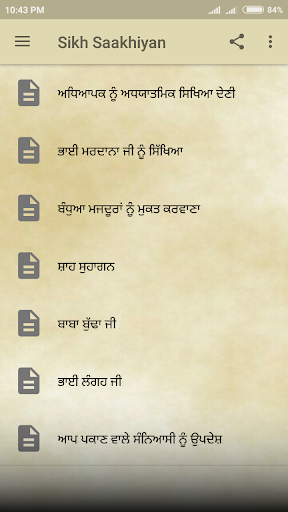 10:43 PM
84%
Sikh Saakhiyan
ਅਧਿਆਪਕ ਨੂੰ ਅਧਯਾਤਮਿਕ ਸਿਖਿਆ ਦੇਣੀ
ਭਾਈ ਮਰਦਾਨਾ ਜੀ ਨੂੰ ਸਿੱਖਿਆ
ਬੰਧੁਆ ਮਜਦੂਰਾਂ ਨੂੰ ਮੁਕਤ ਕਰਵਾਣਾ
ਸ਼ਾਹ ਸੁਹਾਗਨ
ਬਾਬਾ ਬੁੱਢਾ ਜੀ
ਭਾਈ ਲੰਗਹ ਜੀ
ਆਪ ਪਕਾਣ ਵਾਲੇ ਸੰਨਿਆਸੀ ਨੂੰ ਉਪਦੇਸ਼